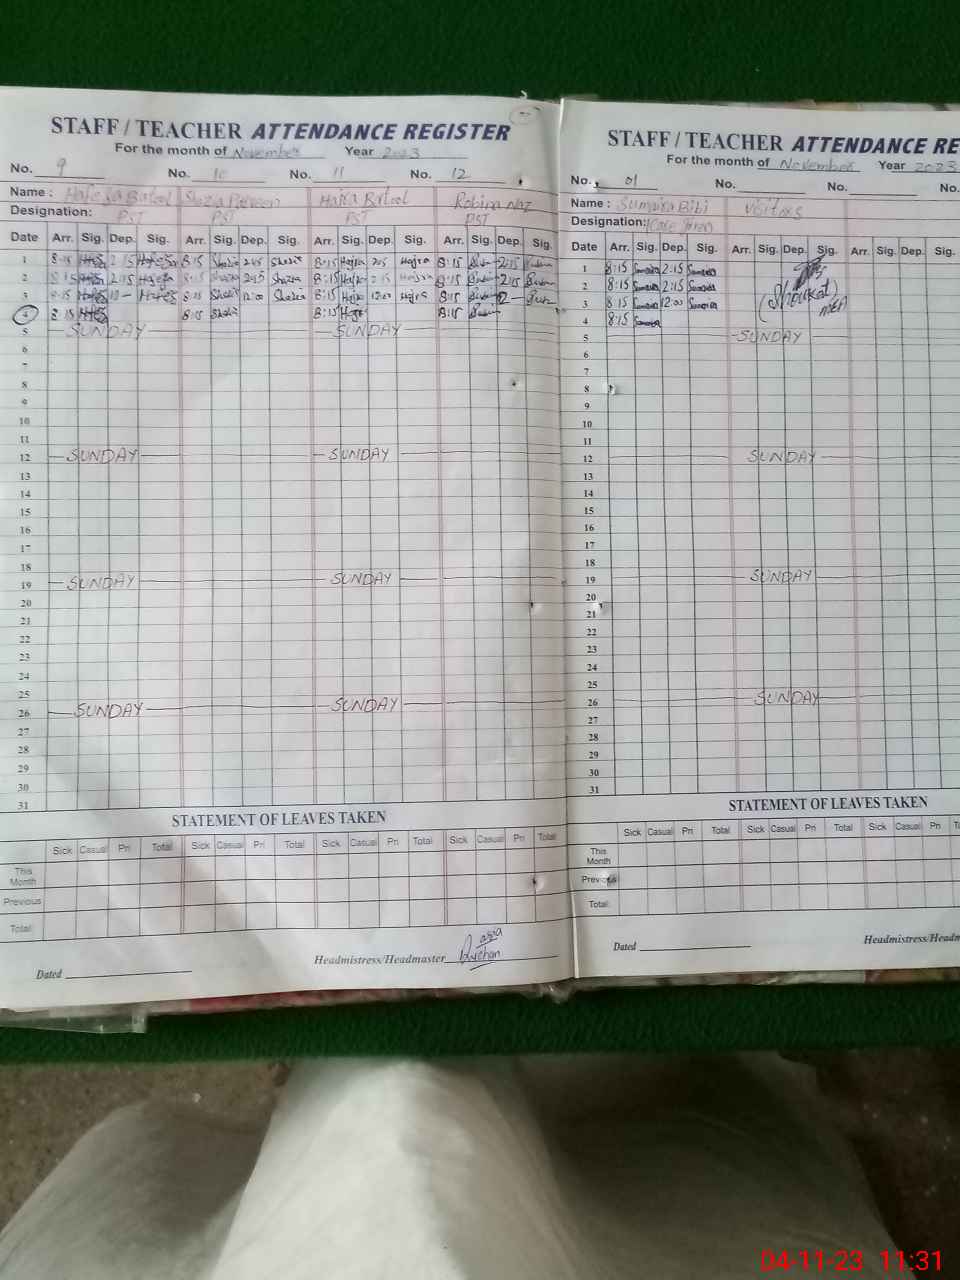 STAFF / TEACHER ATTENDANCE REGISTER
For the month of November Year 2023
No. 9 No. 10 No. 11 No. 12
Name : Hafeza Batool Shazia Parveen Hajra Batool Robina Naz
Designation: PST PST PST PST
Date Arr. Sig. Dep. Sig. Arr. Sig. Dep. Sig. Arr. Sig. Dep. Sig. Arr. Sig. Dep. Sig.
1 8:15 2:15 8:15 Shazia 2:15 Shazia 8:15 Hajra 2:15 Hajra 8:15 2:15
2 8:15 2:15 8:15 Shazia 2:15 Shazia 8:15 Hajra 2:15 Hajra 8:15 2:15
3 8:15 12- 8:15 Shazia 12:00 Shazia 8:15 Hajra 12:00 Hajra 8:15 12-
4 8:15 8:15 Shazia 8:15 Hajra 8:15
5 SUNDAY SUNDAY
6
7
8
9
10
11
12 SUNDAY SUNDAY
13
14
15
16
17
18
19 SUNDAY SUNDAY
20
21
22
23
24
25
26 SUNDAY SUNDAY
27
28
29
30
31
STATEMENT OF LEAVES TAKEN
Sick Casual Pri Total Sick Casual Pri Total Sick Casual Pri Total Sick Casual Pri Total
This Month
Previous
Total
Dated Headmistress/Headmaster
STAFF / TEACHER ATTENDANCE RE
For the month of November Year 2023
No. 01 No. No. No.
Name : Sumaira Bibi Visitors
Designation:
Date Arr. Sig. Dep. Sig. Arr. Sig. Dep. Sig. Arr. Sig. Dep. Sig.
1 8:15 Sumaira 2:15 Sumaira
2 8:15 Sumaira 2:15 Sumaira (Shoukat)
3 8:15 Sumaira 12:00 Sumaira MEA
4 8:15 Sumaira
5 SUNDAY
6
7
8
9
10
11
12 SUNDAY
13
14
15
16
17
18
19 SUNDAY
20
21
22
23
24
25
26 SUNDAY
27
28
29
30
31
STATEMENT OF LEAVES TAKEN
Sick Casual Pri Total Sick Casual Pri Total Sick Casual Pri
This Month
Previous
Total
Dated Headmistress/Headm
04-11-23 11:31